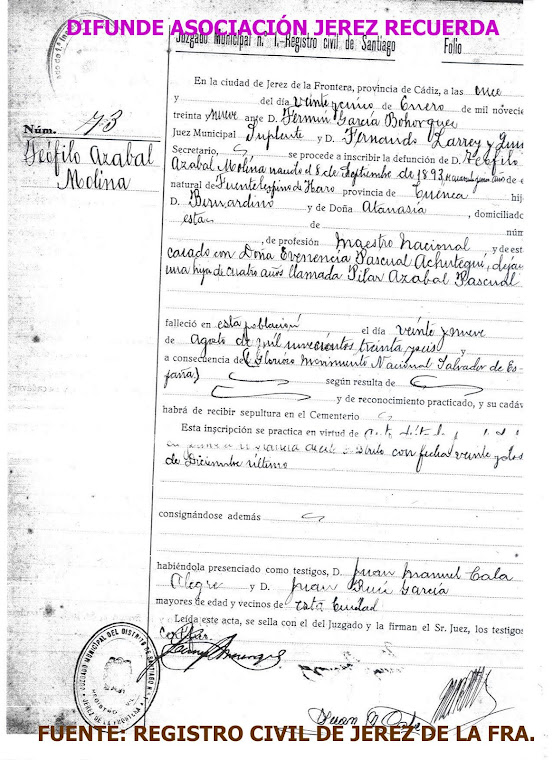 DIFUNDE ASOCIACIÓN JEREZ RECUERDA
Juzgado Municipal n.º 1.-Registro civil de Santiago Folio
En la ciudad de Jerez de la Frontera, provincia de Cádiz, a las once
y del día veinticinco de Enero de mil novecie
treinta y nueve ante D. Fermín García Bohorquez
Juez Municipal Suplente y D. Fernando Larrey y
Secretario, se procede a inscribir la defunción de D. Teófilo
Núm. 73
Teófilo Azabal
Molina
Azabal Molina nacido el 8 de Septiembre de 1893, de e
natural de Fuentelespino de Haro provincia de Cuenca hij
D. Bernardino y de Doña Atanasia, domiciliado
esta de núm
, de profesión Maestro Nacional y de est
casado con Doña Evenencia Pascual Achutegui, dejan
una hija de cuatro años llamada Pilar Azabal Pascual
falleció en esta población el día veinte y nueve
de Agosto de mil novecientos treinta y seis y
a consecuencia de (Glorioso Movimiento Nacional Salvador de Es-
paña) según resulta de
y de reconocimiento practicado, y su cadáv
habrá de recibir sepultura en el Cementerio
Esta inscripción se practica en virtud de
con fecha veinte y dos
de Diciembre último
consignándose además
habiéndola presenciado como testigos, D. Juan Manuel Cala
Alegre y D. Juan Ruiz García
mayores de edad y vecinos de esta Ciudad
Leída este acta, se sella con el del Juzgado y la firman el Sr. Juez, los testigos
JUZGADO MUNICIPAL DEL DISTRITO DE SANTIAGO N.º 1
REGISTRO CIVIL
JEREZ DE LA FRONTERA
FUENTE: REGISTRO CIVIL DE JEREZ DE LA FRA.